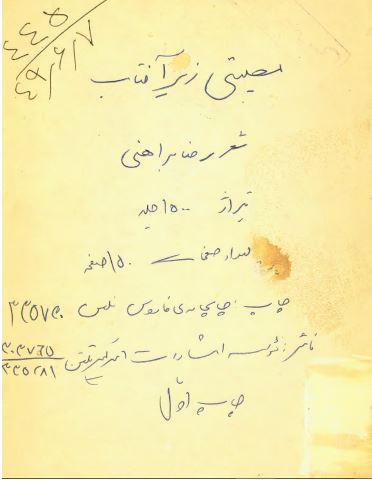 ۴۴۵
۴۹/۶/۷
مصیبتی زیر آفتاب
شعر رضا براهنی
تیراژ ۱۵۰۰ جلد
تعداد صفحات ۱۵۰ صفحه
چاپ: چاپخانه‌ی فاروس تلفن
ناشر: مؤسسه انتشارات امیرکبیر تلفن
چاپ اوّل